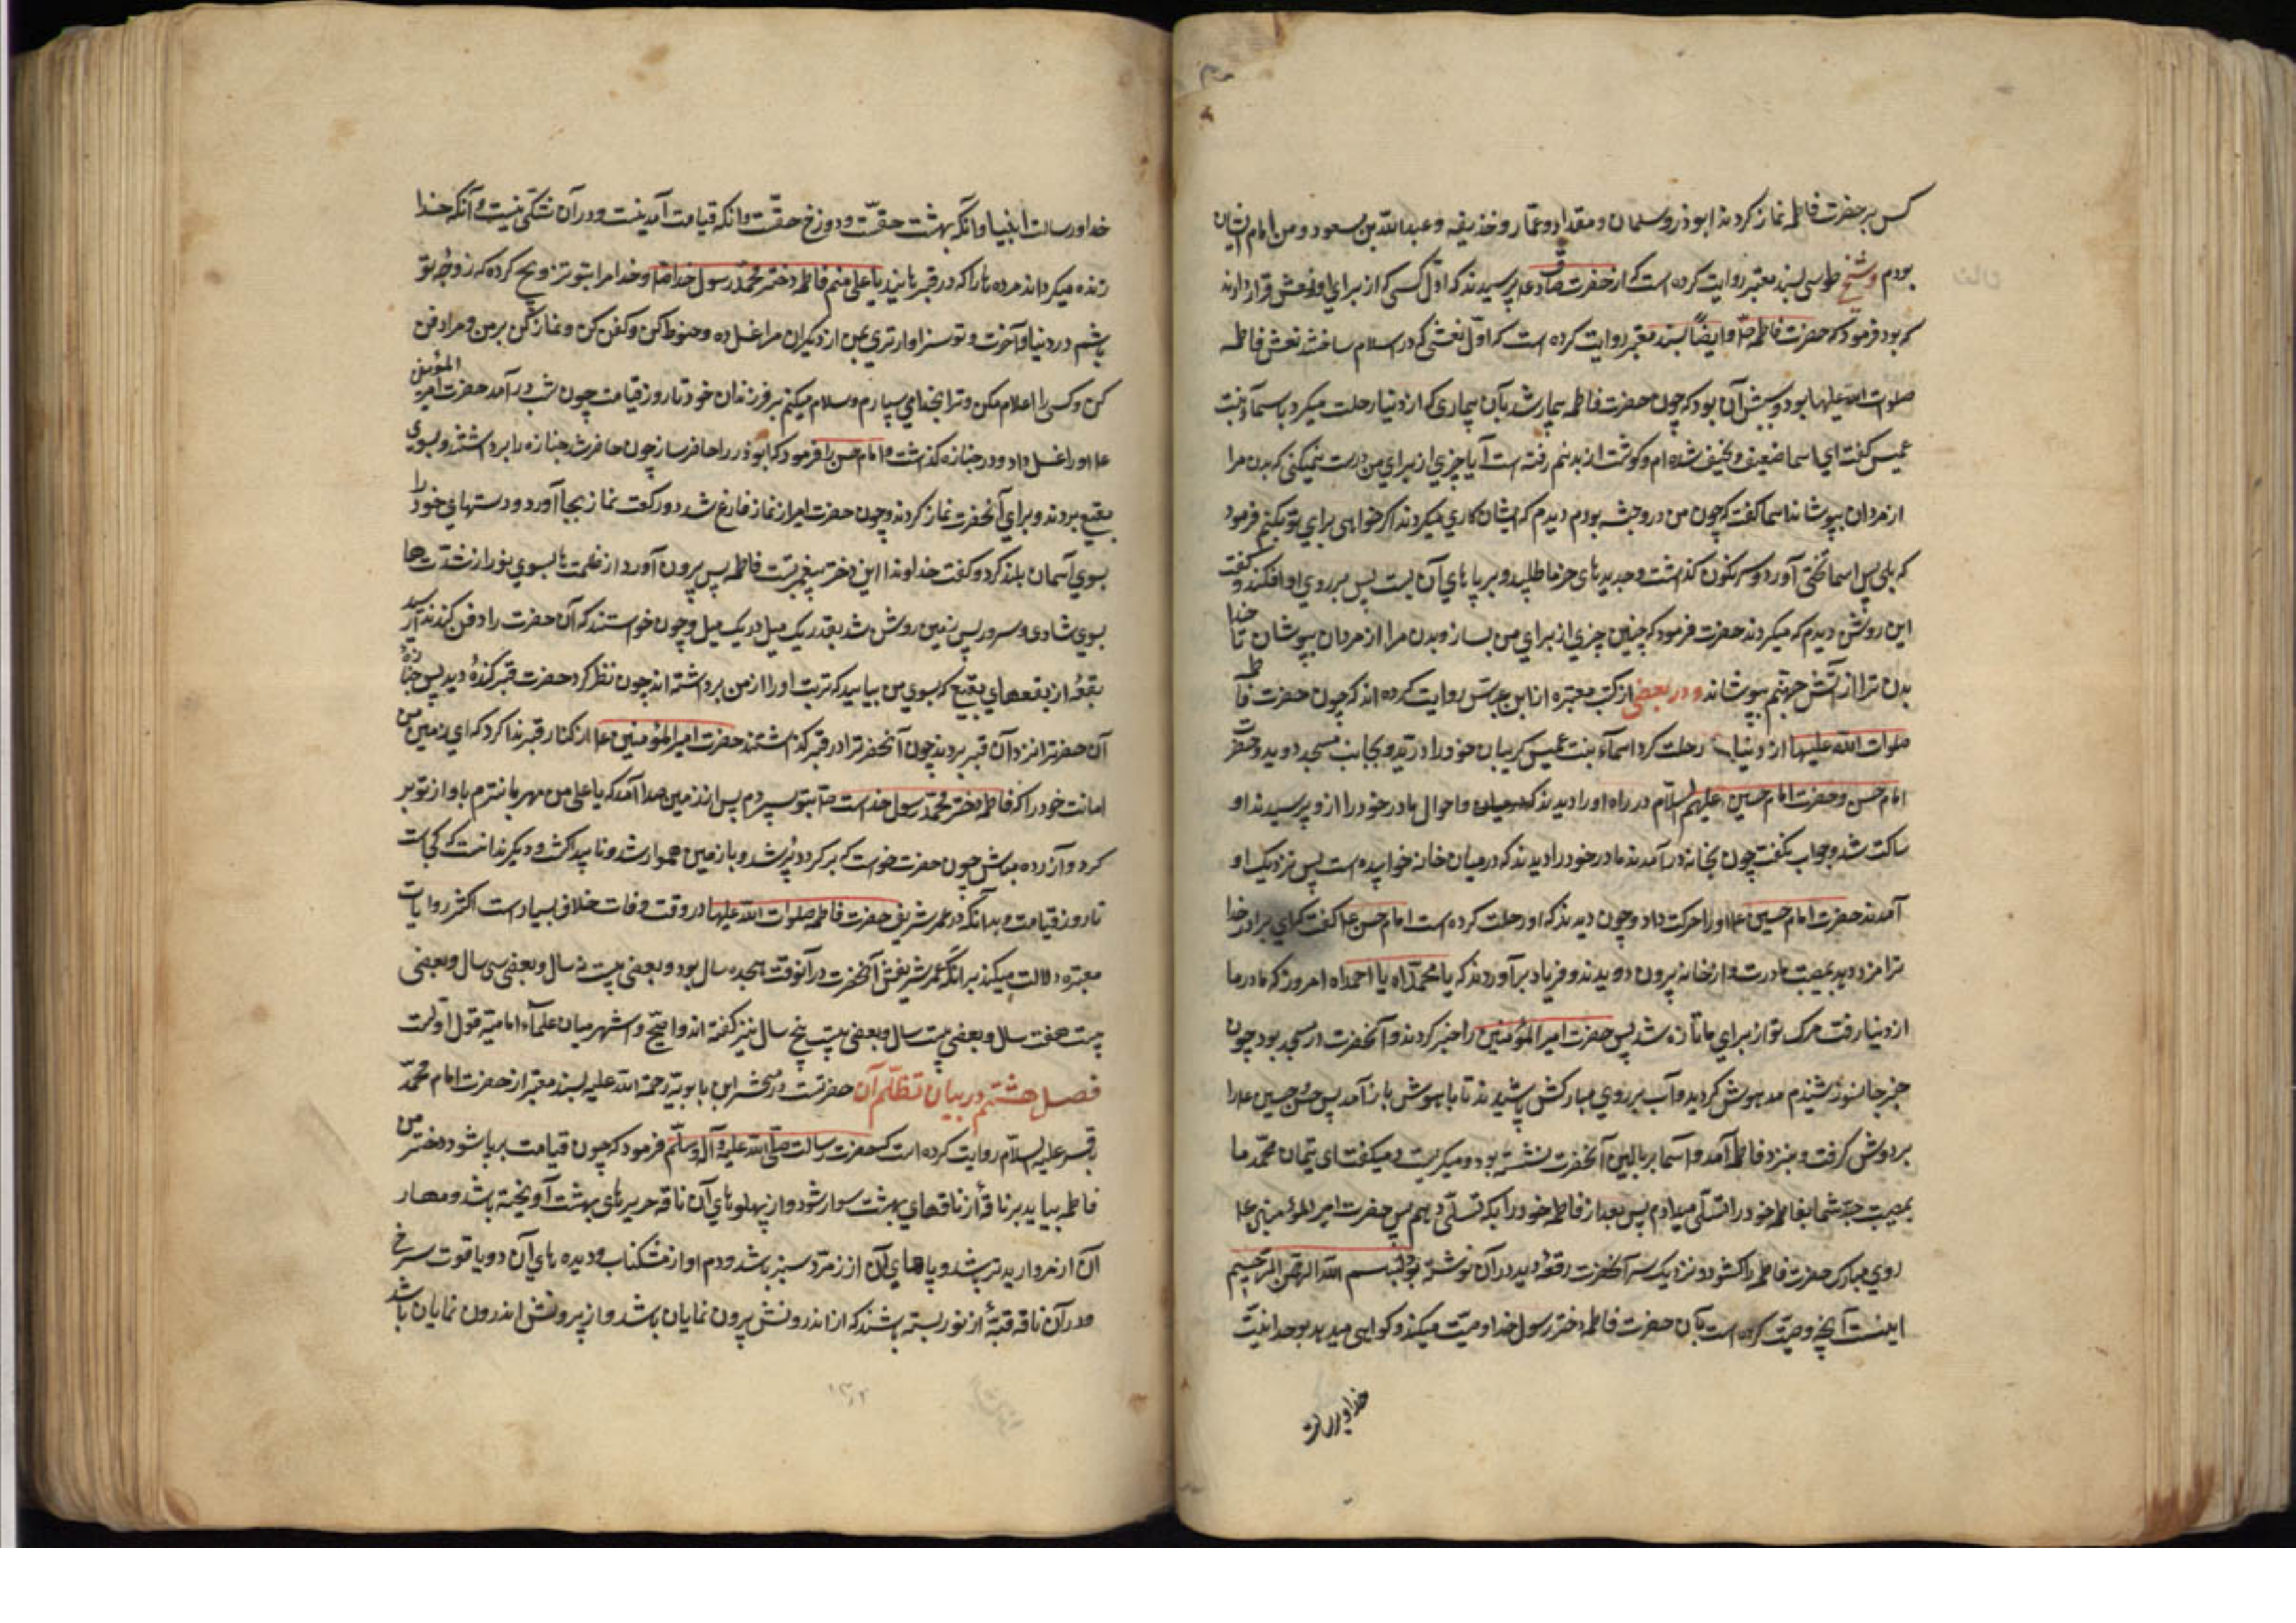 کس بر حضرت فاطمه نماز کردند ابوذر و سلمان و مقداد و عمّار و حذیفه و عبدالله بن مسعود و من امام ایشان
بودم و شیخ طوسی بسند معتبر روایت کرده است که از حضرت صادق ع پرسیدند که اوّل کسی که از برای او نعش قرار دادند
که بود فرمود که حضرت فاطمه صلّ وایضاً بسند معتبر روایت کرده است که اوّل نعشی که در اسلام ساختند نعش فاطمه
صلوات الله علیها بود و سببش آن بود که چون حضرت فاطمه بیمار شد بآن بیماری که از دنیا رحلت میکرد باسمآء بنت
عمیس گفت ای اسما ضعیف و نحیف شده ام و گوشت از بدنم رفته است آیا چیزی از برای من درست نمیکنی که بدن مرا
از مردان بپوشاند اسما گفت که چون من در حبشه بودم دیدم که ایشان کاری میکردند اگر خواهی برای تو بکنم فرمود
که بلی پس اسما تختی آورد و سرنگون گذاشت و جریدهای خرما طلبید و بر پاهای آن بست پس بر روی او افکند و گفت
این روش دیدم که میکردند حضرت فرمود که چنین چیزی از برای من بساز و بدن مرا از مردان بپوشان تا خدا
بدن ترا از آتش جهنّم بپوشاند و در بعضی از کتب معتبره از ابن عبّاس روایت کرده اند که چون حضرت فاطمه
صلوات الله علیها از دنیا رحلت کرد اسمآء بنت عمیس گریبان خود را درید و بجانب مسجد دوید و حضرت
امام حسن و حضرت امام حسین علیهم السلاّم در راه او را دیدند و احوال مادر خود را ازو پرسیدند او
ساکت شد و جواب نگفت چون بخانه در آمدند مادر خود را دیدند که در میان خانه خوابیده است پس نزدیک او
آمدند حضرت امام حسین ع او را حرکت داد و چون دیدند که او رحلت کرده است امام حسن ع گفت که ای برادر خدا
ترا مزد دهد بمصیبت مادرت و از خانه بیرون دویدند و فریاد بر آوردند که یا محمّداه یا احمداه امروز که مادر ما
از دنیا رفت مرک تو از برای ما تازه شد پس حضرت امیر المؤمنین را خبر کردند و آنحضرت در مسجد بود چون
خبر جانسوز شنیدم مدهوش گردید و آب بر روی مبارکش پاشیدند تا باهوش باز آمد پس حسن و حسین ع را
بر دوش گرفت و بنزد فاطمه آمد و اسما بر بالین آنحضرت نشسته بود و میگریست و میگفت ای یتیمان محمّد ما
بمصیبت جدّ شما بفاطمه خود را تسلّی میدادم پس بعد از فاطمه خود را بکه تسلّی دهم پس حضرت امیر المؤمنین ع
روی مبارک حضرت فاطمه را گشود و نزدیک سر آنحضرت رقعهٔ دید در آن نوشته بود بسم الله الرحمن الرّحیم
اینست آنچه وصیّت کرده است بآن حضرت فاطمه دختر رسول خدا وصیّت میکند و گواهی میدهد بوحدانیّت
خدا و رسالت
خدا و رسالت انبیا و آنکه بهشت حقّست و دوزخ حقّست و آنکه قیامت آمدنیست و در آن شکّی نیست و آنکه خدا
زنده میگرداند مرده ها را که در قبرهایند یا علی منم فاطمه دختر محمّد رسول خدا ص و خدا مرا بتو تزویج کرده که زوجهٔ تو
باشم در دنیا و آخرت و تو سزاوارتری بمن از دیگران مرا غسل ده و حنوط کن و کفن کن و نماز کن بر من و مرا دفن
کن و کسی را اعلام مکن و ترا بخدا می سپارم و سلام میکنم بر فرزندان خود تا روز قیامت چون شب در آمد حضرت امیر المؤمنین
ع او را غسل داد و در جنازه گذاشت و امام حسن را فرمود که ابوذر را حاضر ساز چون حاضر شد جنازه را برداشتند و بسوی
بقیع بردند و برای آنحضرت نماز کردند و چون حضرت امیر از نماز فارغ شد دو رکعت نماز بجا آورد و دستهای خود را
بسوی آسمان بلند کرد و گفت خداوندا این دختر پیغمبر تست فاطمه پس بیرون آورد از ظلمت ها بسوی نور از شدّت ها
بسوی شادی و سرور پس زمین روشن شد بقدر یک میل در یک میل و چون خواستند که آن حضرت را دفن کنند
بقعهٔ از بقعهای بقیع که بسوی من بیایید که تربت او را از من برداشته اند چون نظر کرد حضرت قبر کندهٔ دید پس جنازهٔ
آن حضرت را نزد آن قبر بردند چون آنحضرت را در قبر گذاشتند حضرت امیر المؤمنین ع از کنار قبر ندا کرد که ای زمین من
امانت خود را که فاطمه دختر محمّد رسول خداست ص بتو سپردم پس از زمین صدا آمد که یا علی من مهربانترم باو از تو بر
گرد و آزرده مباش چون حضرت خواست که برگردد پُر شد و با زمین هموار شد و ناپیدا گشت و دیگر ندانست که کجاست
تا روز قیامت و بدانکه در عمر شریف حضرت فاطمه صلوات الله علیها در وقت وفات خلاف بسیار است اکثر روایات
معتبره دلالت میکند برانکه عمر شریفش آنحضرت در آنوقت هیجده سال بود و بعضی بیست نه سال و بعضی سی سال و بعضی
بیست هفت سال و بعضی بیست سال و بعضی بیست پنج سال نیز گفته اند و اصّح و اشهر میان علمآء امامیّه قول اوّلست
فصل هشتم در بیان تظلّم آن حضرتست در محشر ابن بابویه رحمة الله علیه بسند معتبر از حضرت امام محمّد
باقر علیه السلاّم روایت کرده است که حضرت رسالت صلّی الله علیه و آله وسلّم فرمود که چون قیامت بر پا شود دختر من
فاطمه بیاید بر ناقهٔ از ناقهای بهشت سوار شود و از پهلوهای آن ناقه حریرهای بهشت آویخته باشد و مهار
آن از مروارید تر باشد و پاهای آن از زمرّد سبز باشد و دم او از مشک ناب و دیده های آن دو یاقوت سرخ
و در آن ناقه قبّهٔ از نور بسته باشند که از اندرونش بیرون نمایان باشد و از بیرونش اندرون نمایان باشد